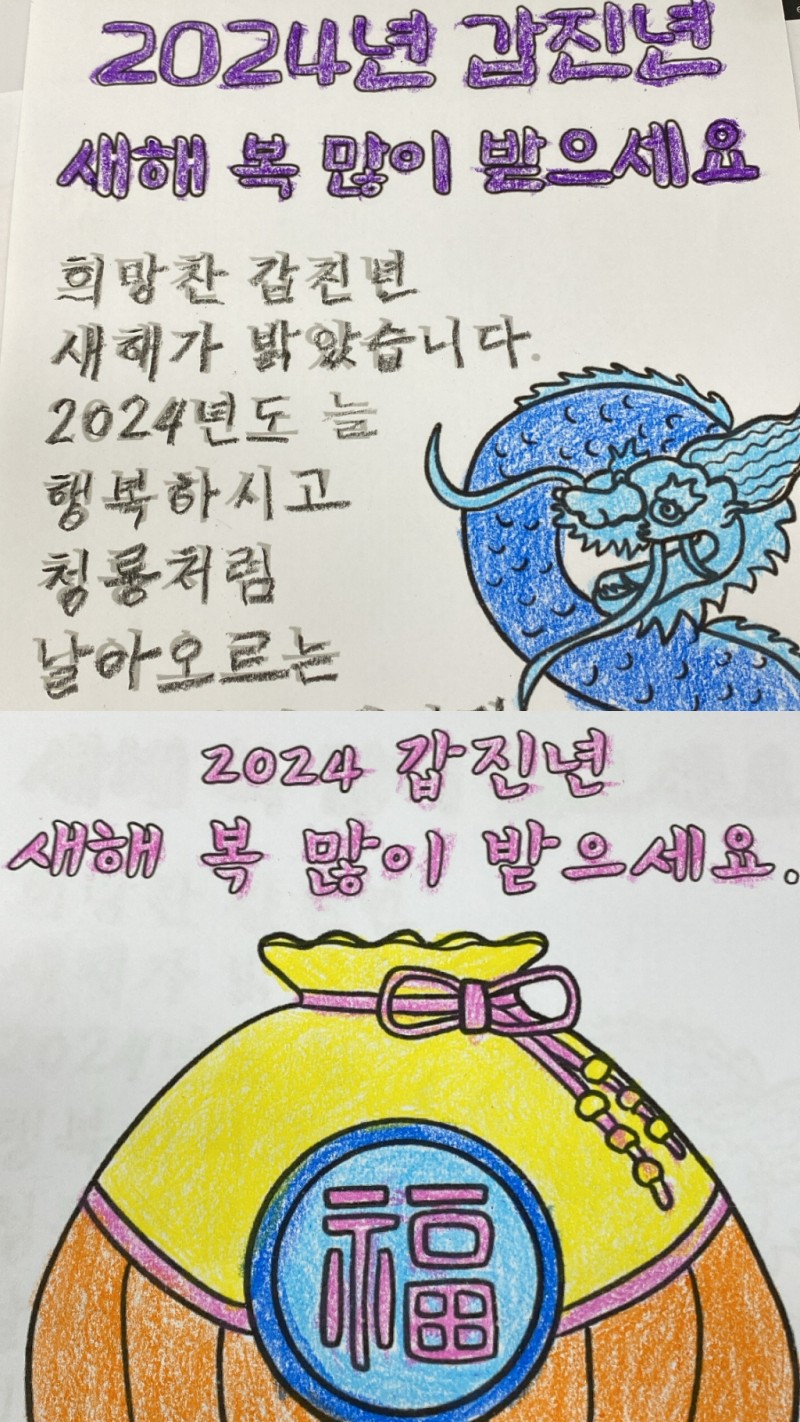 2024년 갑진년
새해 복 많이 받으세요
희망찬 갑진년
새해가 밝았습니다.
2024년도 늘
행복하시고
청룡처럼
날아오르는
2024 갑진년
새해 복 많이 받으세요.
福